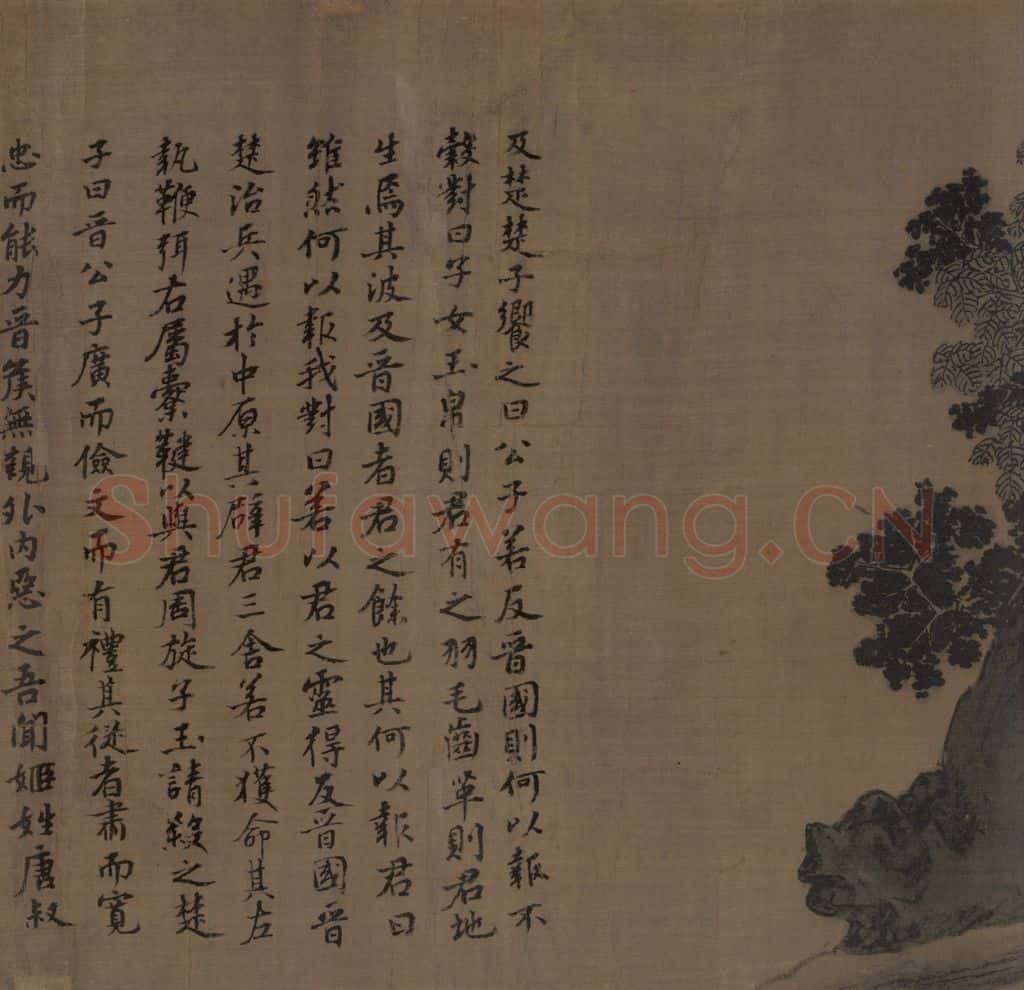 及楚楚子饗之曰公子若反晉國則何以報不
穀對曰子女玉帛則君有之羽毛齒革則君地
生焉其波及晉國者君之餘也其何以報君曰
雖然何以報我對曰若以君之靈得反晉國晉
楚治兵遇於中原其辟君三舍若不獲命其左
執鞭弭右屬櫜鞬以與君周旋子玉請殺之楚
子曰晉公子廣而儉文而有禮其從者肅而寬
忠而能力晉侯無親外內惡之吾聞姬姓唐叔
Shufawang.CN